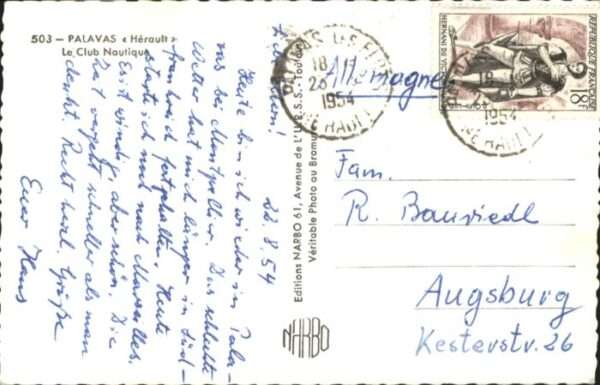 503 – PALAVAS « Hérault »
Le Club Nautique
22.8.54
Heute bin ich wieder in Pala-
vas bei Montpellier. Das schlechte
Wetter hat mich länger in Süd-
frankreich festgehalten. Heute
starte ich noch nach Marseilles.
Es ist windig, aber schön. Die
Zeit vergeht schneller als man
denkt. Recht herzl. Grüße
Euer Hans
Editions NARBO 61, Avenue de L'U.R.S.S. - Toulouse
Véritable Photo au Bromure
NARBO
PALAVAS LES FLOTS
18
23
1954
HERAULT
1954
HERAULT
HERNANI DE VICTOR
REPUBLIQUE FRANÇAISE
18F
Allemagne
Fam.
R. Bauriedl
Augsburg
Kesterstr. 26